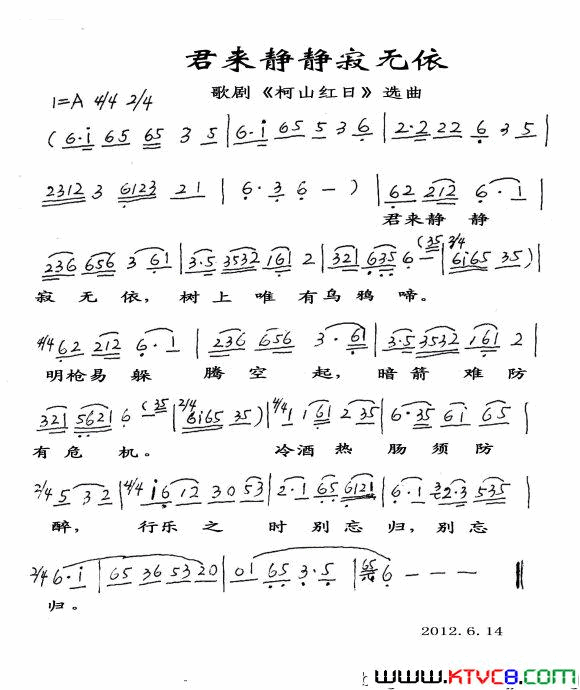 君来静静寂无依
歌剧《柯山红日》选曲
1=A 4/4 2/4
(6·i 65 65 3 5 | 6·i 65 5 3 6 | 2·2 22 6 3 5 |
2312 3 6123 21 | 6· 3 6 — ) | 62 212 6· 1 |
君来静 静
236 656 3 61 | 3·5 3532 161 2 | 321 635 6 — (35 | 2/4 6i65 35) |
寂 无 依, 树 上 唯 有 乌 鸦 啼。
4/4 62 212 6· 1 | 236 656 3· 61 | 3·5 3532 161 2 |
明枪易 躲 腾 空 起, 暗 箭 难 防
321 5621 6 (35 | 2/4 6i65 35) | 4/4 1 161 2 35 | 6·35 6i 65 |
有 危 机。 冷 酒 热 肠 须 防
2/4 5 32 | 4/4 i6 12 30 53 | 2·1 65 6121 | 6·1 2·3 535 |
醉, 行 乐 之 时 别 忘 归, 别 忘
2/4 6·i | 65 36 53 20 | 01 65 3·5 | 65 6 — — — ‖
归。
2012.6.14
www.KTVC8.com